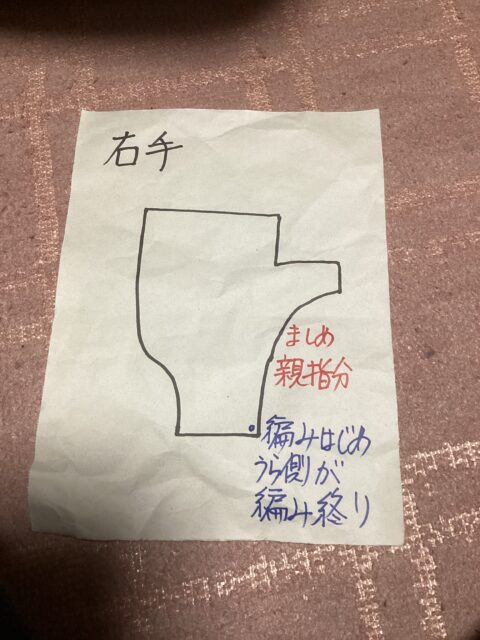 右手
ましめ
親指分
編みはじめ
うら側が
編み終り